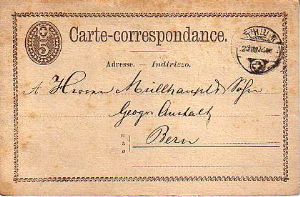 5
Carte-correspondance.
Adresse. — Indirizzo.
A Herren Müllhaupt & Sohn
Geogr. Anstalt
Bern